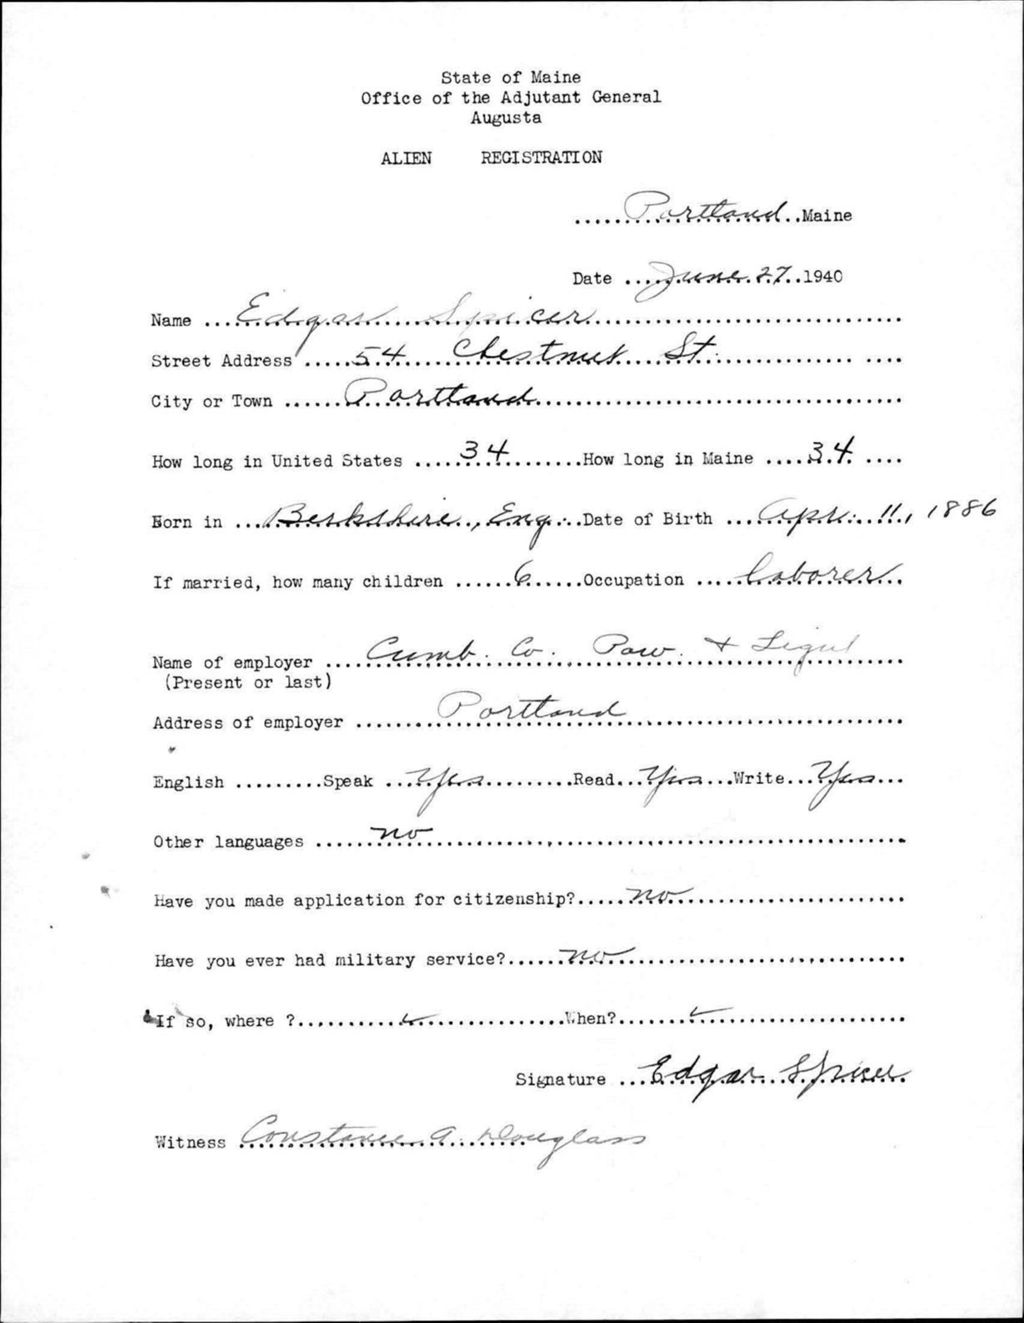 State of Maine
Office of the Adjutant General
Augusta
ALIEN REGISTRATION
......Portland..Maine
Date ....June 27..1940
Name ...Edgar Spicer...
Street Address.....54 Chestnut St....
City or Town ......Portland...
How long in United States .....34.........How long in Maine ....34. ....
Born in ...Berkshire., Eng...Date of Birth ...Apr. 11, 1886
If married, how many children ......6......Occupation .....laborer..
Name of employer ....Cumb. Co. Pow. & Light....
(Present or last)
Address of employer .........Portland...
English .........Speak ..Yes..........Read...Yes...Write...Yes...
Other languages ......no...
Have you made application for citizenship?.....no...
Have you ever had military service?......no...
If so, where ?..............When?.......
Signature ...Edgar Spicer.
Witness Constance A. Douglass